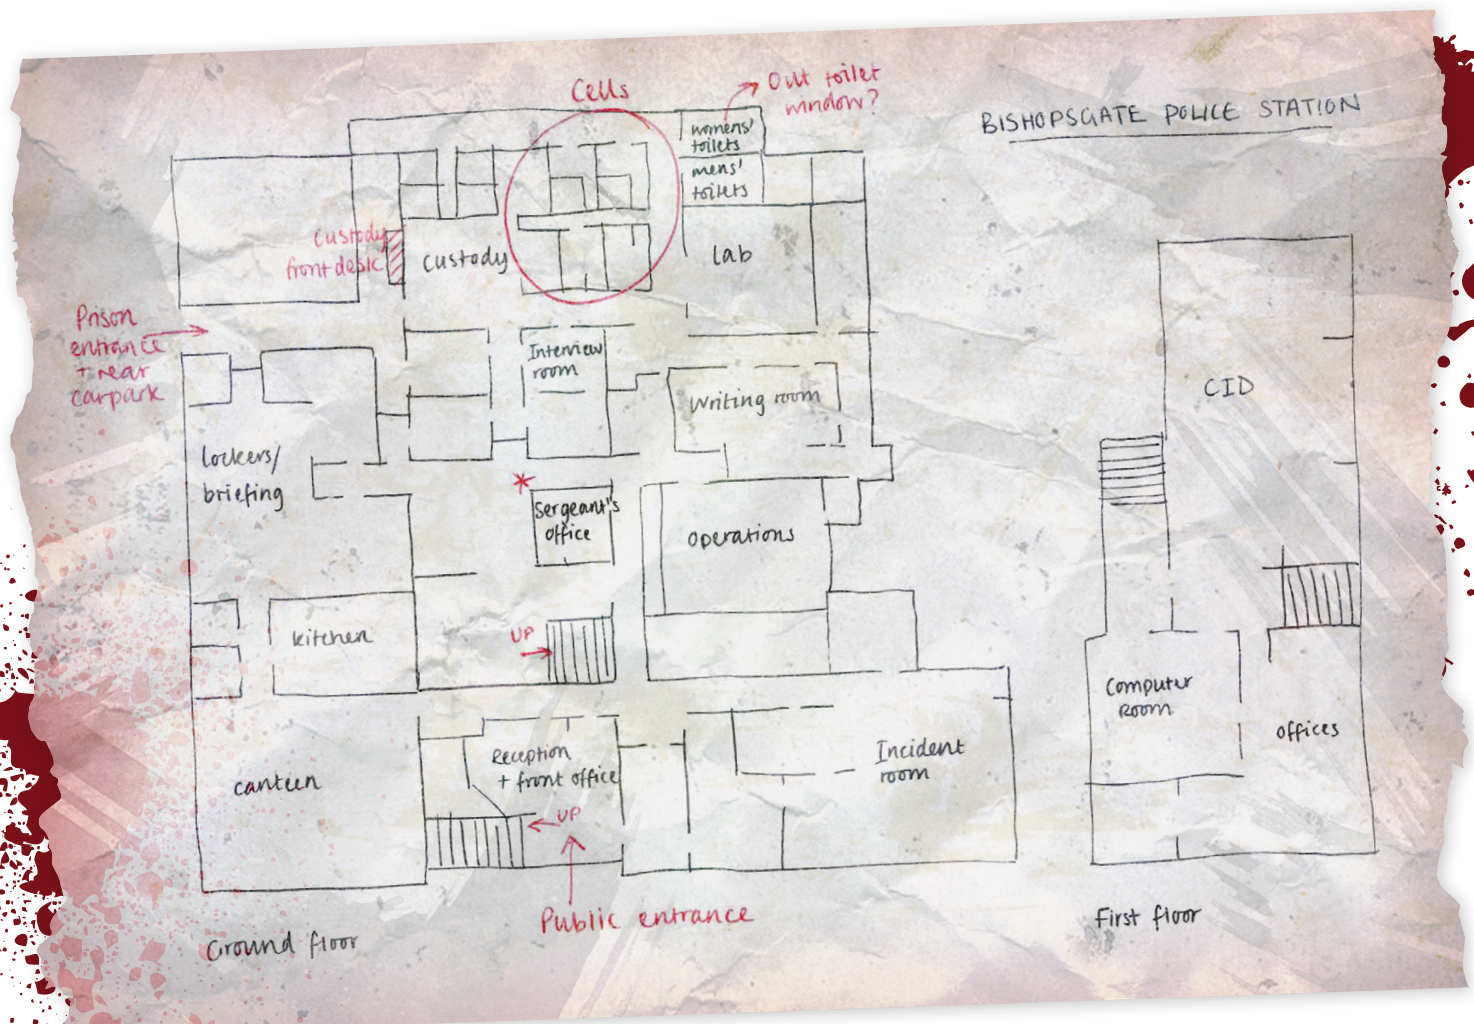 Cells
Out toilet
window?
BISHOPSGATE POLICE STATION
womens'
toilets
mens'
toilets
custody
front desk
custody
lab
Prison
entrance
+ rear
carpark
Interview
room
Writing room
CID
lockers/
briefing
Sergeant's
office
operations
kitchen
UP
Computer
Room
offices
canteen
Reception
+ front office
Incident
room
UP
Public entrance
Ground floor
First floor